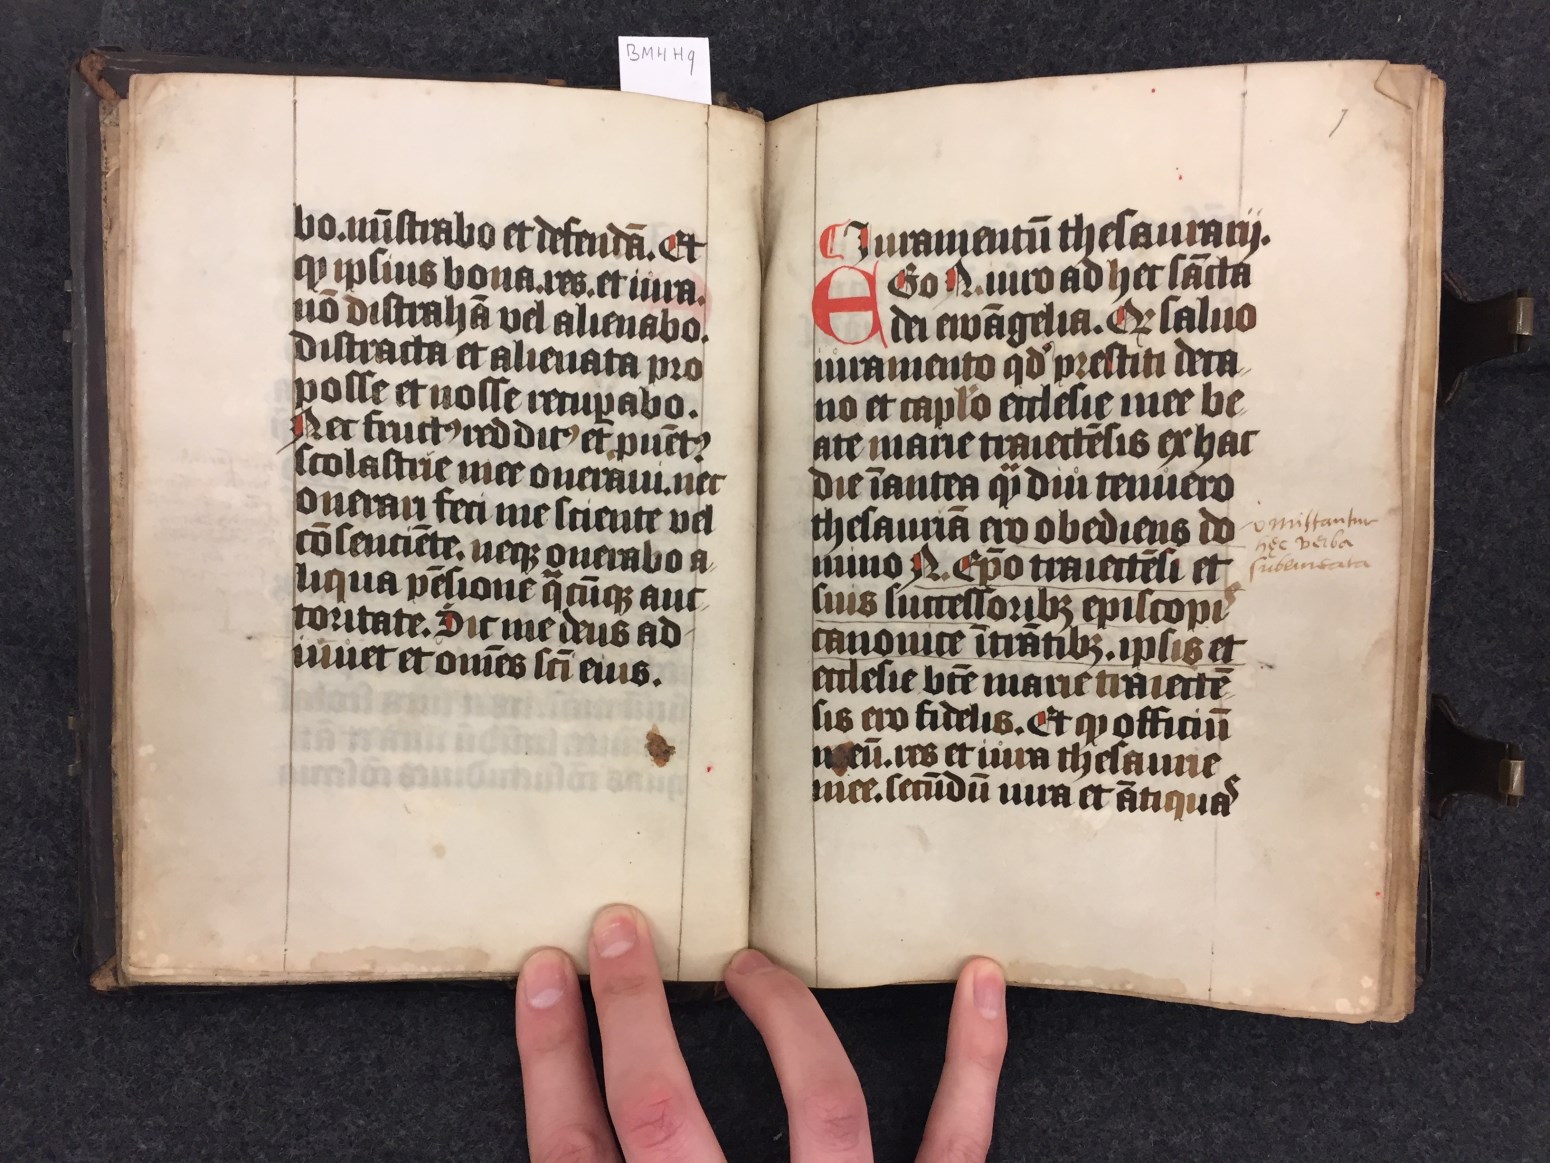 BMH H9
bo. mīistrabo et defendā. Et
qͥ ipsius bona. res. et iura.
nō distrahā vel alienabo.
distracta et alienata pro
posse et nosse recuꝑabo.
Nec fructꝰ redditꝰ et ꝓuētꝰ
scolastrie mee oneraui. nec
onerari feci me sciente vel
cōsenciēte. neqꝫ onerabo a-
liqua pēsione q̄cūqꝫ auc-
toritate. Sic me deus ad-
iuuet et om̄es sc̄i eius.
7
Iuramentū thesaurarij.
EGo N. iuro ad hec sācta
dei ewāgelia. Qꝫ saluo
iuramento qd' prestiti deca-
no et capl'o ecclesie mee be-
ate marie traiectēsis ex hac
die īantea qͣ diu tenuero
thesauriā ero obediens do
mino N. Ep̄o traiectēsi et
suis successoribꝫ episcopis
canonice ītrātibꝫ. ipsis et
ecclesie bt̄e marie traiectē-
sis ero fidelis. Et qͥ officiū
meū. res et iura thesaurie
mee. secūdū iura et ātiquas
omittantur
hęc verba
sublineata